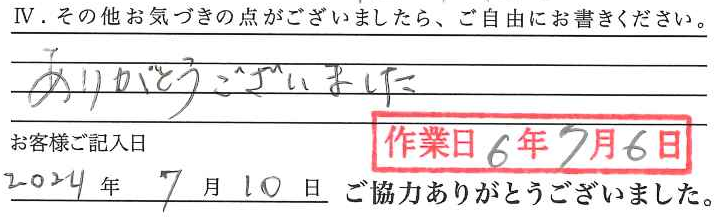 Ⅳ．その他お気づきの点がございましたら、ご自由にお書きください。
ありがとうございました
お客様ご記入日
作業日 6年7月6日
2024 年 7 月 10 日 ご協力ありがとうございました。